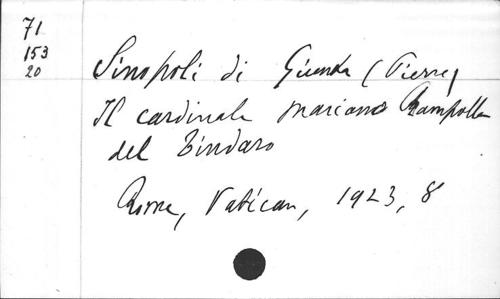 71
153
20
Sinopoli di Giunta (Pierre)
Il cardinale Mariano Rampolla
del Tindaro
Rome, Vatican, 1923, 8